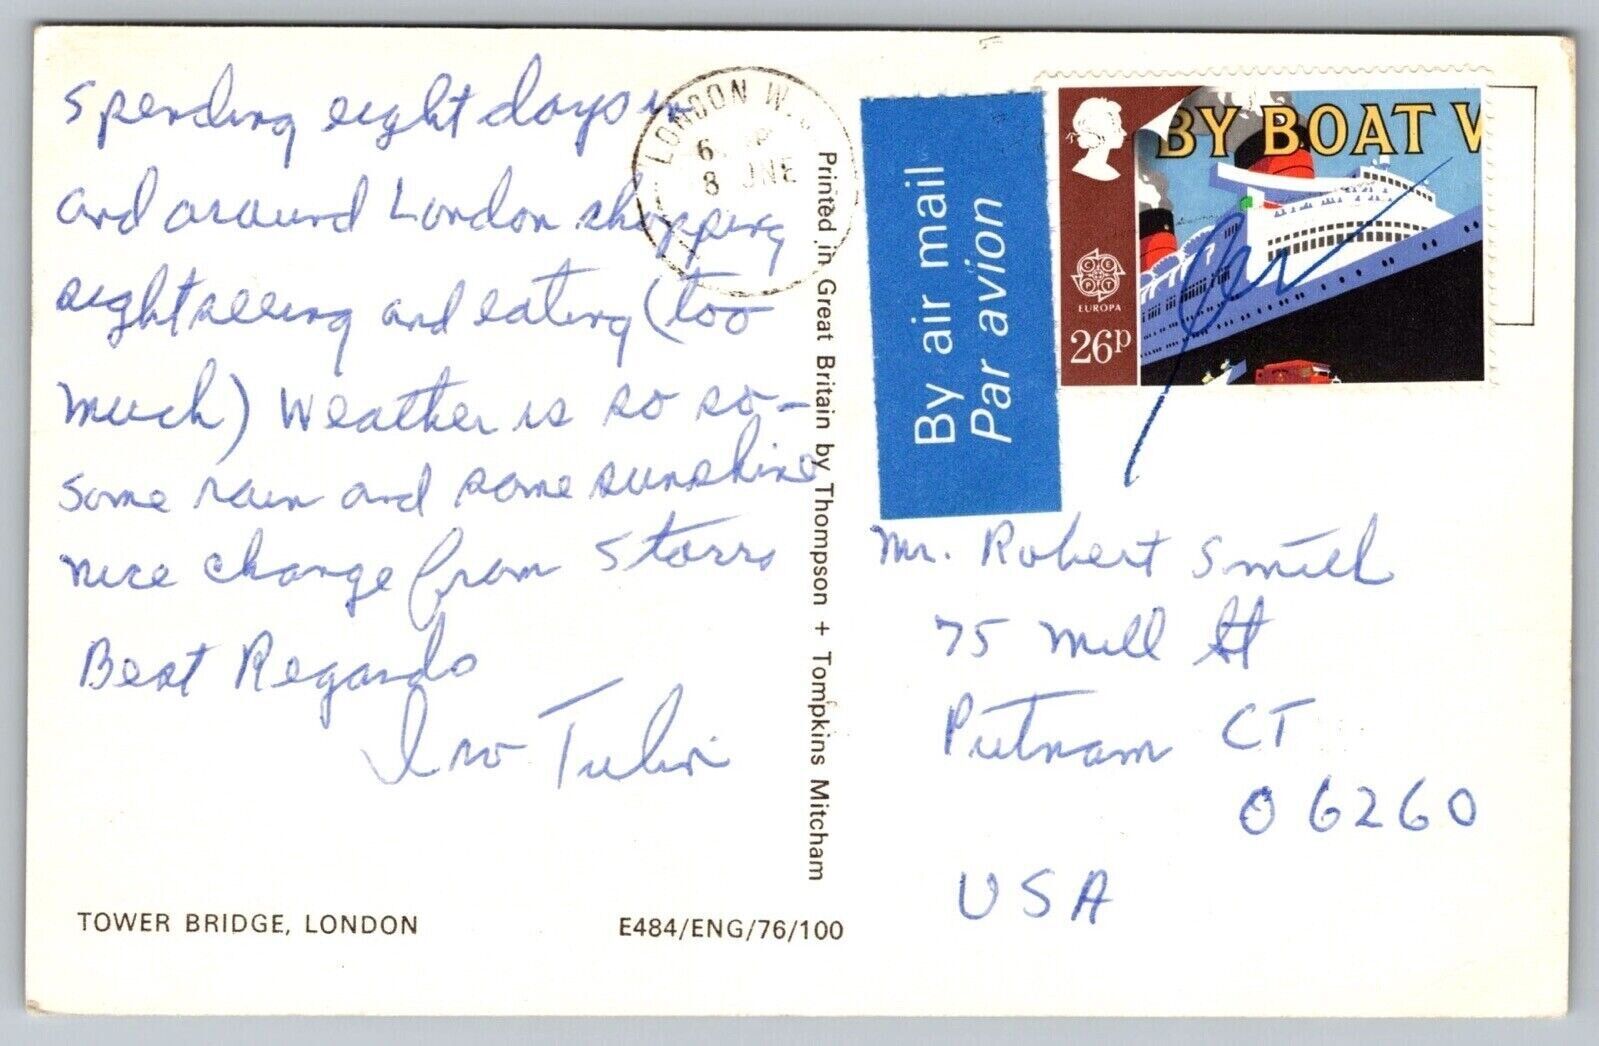 Spending eight days in
and around London shopping
sightseeing and eating (too
much) Weather is so so-
some rain and some sunshine
nice change from Storrs
Best Regards
TOWER BRIDGE, LONDON
E484/ENG/76/100
Printed in Great Britain by Thompson + Tompkins Mitcham
LONDON W.
6
8 JNE
By air mail
Par avion
BY BOAT
CEPT
EUROPA
26p
Mr. Robert Smith
75 Mill St
Putnam CT
06260
USA